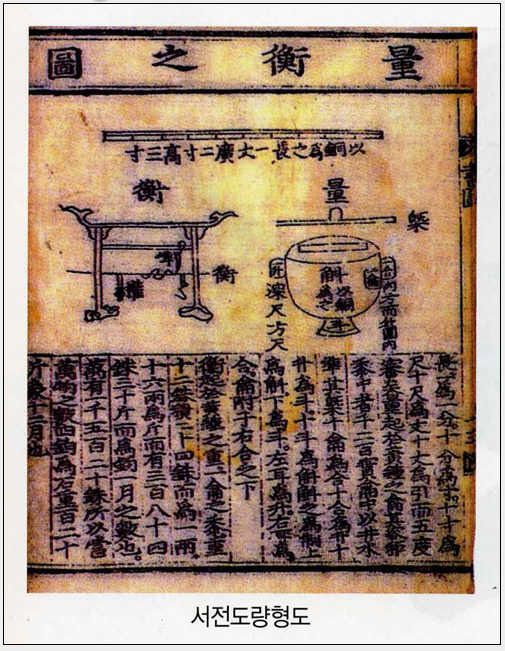 量衡之圖
以銅爲之長一丈廣二寸高三寸
量
槩
斛以銅爲之
斗
升
深尺方尺
內方而外圓
衡
衡
權
長爲一分。十分爲寸。十寸爲
尺十尺爲丈十丈爲引而五度
審矣量起於黃鍾之龠其容秬
黍中者千二百實龠中以井水
準其槩十龠爲合十合爲升十
升爲斗。十斗爲斛斛之爲制上
爲斛。下爲斗。左耳爲升右耳爲
合龠附于右合之下
衡起於黃鍾之重一龠之黍重
十二銖積二十四銖而爲一兩
十六兩爲斤而有三百八十四
銖三十斤而爲鈞一月之數也。
萬有一千五百二十銖所以當
萬物之數四鈞爲石重百二十
斤象十二月也
서전도량형도